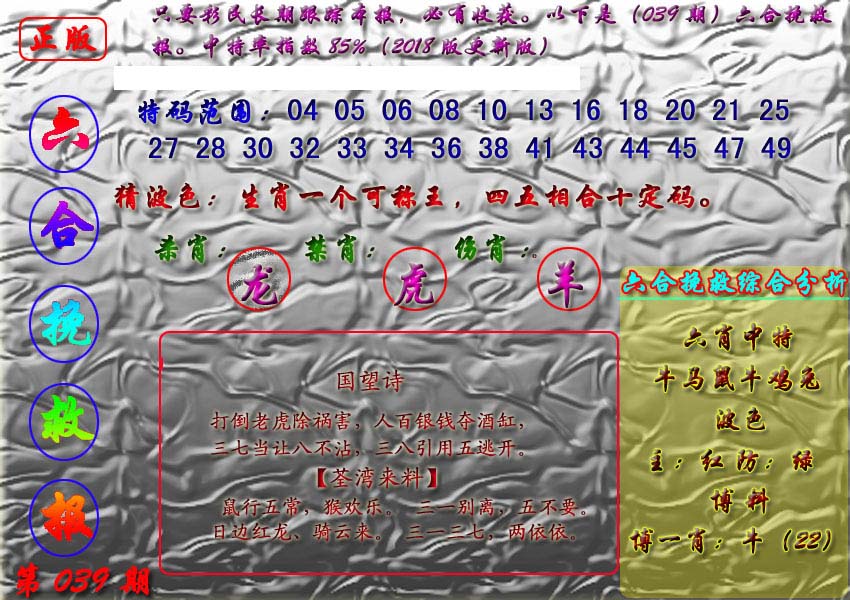 正版
只要彩民长期跟踪本报，必有收获。以下是（039期）六合挽救
报。中特率指数85%（2018版更新版）
六
合
挽
救
报
特码范围：04 05 06 08 10 13 16 18 20 21 25
27 28 30 32 33 34 36 38 41 43 44 45 47 49
猜波色：生肖一个可称王，四五相合十定码。
杀肖：龙 禁肖：虎 伤肖：羊
国望诗
打倒老虎除祸害，人百银钱夺酒缸，
三七当让八不沾，三八引用五逃开。
【荃湾来料】
鼠行五常，猴欢乐。 三一别离，五不要。
日边红龙、骑云来。 三一二七，两依依。
六合挽救综合分析
六肖中特
牛马鼠牛鸡兔
波色
主：红防：绿
博料
博一肖：牛（22）
第039期